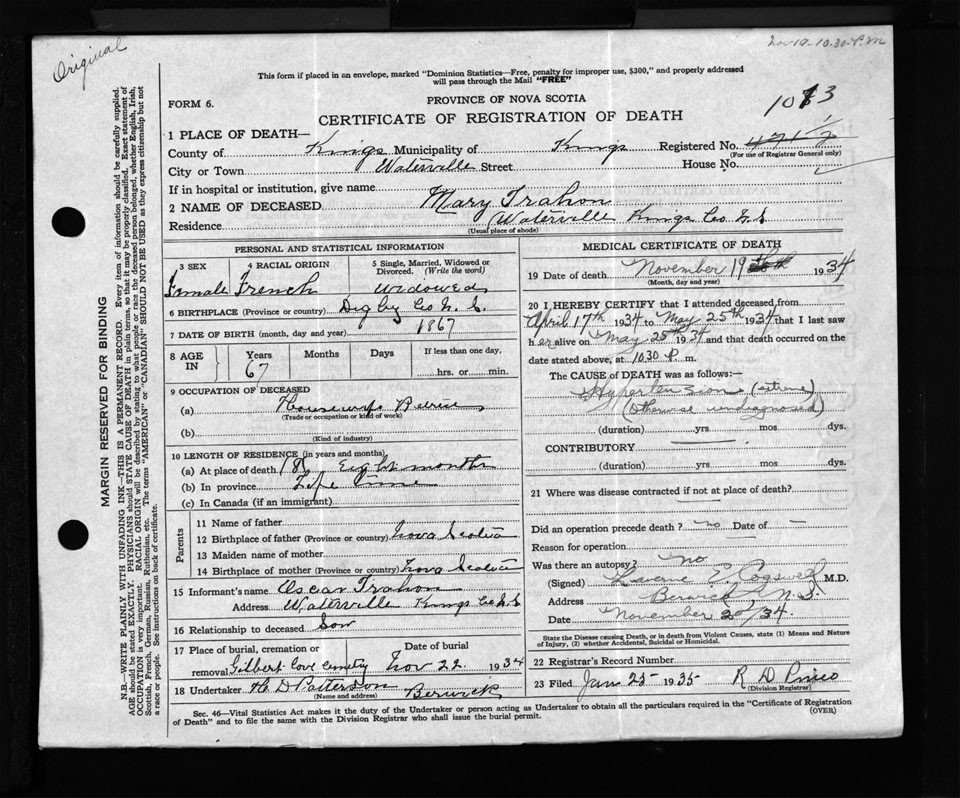 Original
Nov 19 - 10.30 P.M
This form if placed in an envelope, marked "Dominion Statistics—Free, penalty for improper use, $300," and properly addressed
will pass through the Mail "FREE"
FORM 6.
PROVINCE OF NOVA SCOTIA
CERTIFICATE OF REGISTRATION OF DEATH
1 PLACE OF DEATH—
County of Kings Municipality of Kings Registered No.
(For use of Registrar General only)
City or Town Waterville Street House No.
If in hospital or institution, give name
2 NAME OF DECEASED Mary Trahon
Residence Waterville Kings Co N.S
(Usual place of abode)
PERSONAL AND STATISTICAL INFORMATION
3 SEX 4 RACIAL ORIGIN 5 Single, Married, Widowed or
Divorced. (Write the word)
Female French widowed
6 BIRTHPLACE (Province or country) Digby Co N. S.
7 DATE OF BIRTH (month, day and year) 1867
8 AGE IN Years Months Days If less than one day,
67 hrs. or min.
9 OCCUPATION OF DECEASED
(a) Housewife
(Trade or occupation or kind of work)
(b)
(Kind of industry)
10 LENGTH OF RESIDENCE (in years and months)
(a) At place of death Eight months
(b) In province Life time
(c) In Canada (if an immigrant)
Parents
11 Name of father
12 Birthplace of father (Province or country) Nova Scotia
13 Maiden name of mother
14 Birthplace of mother (Province or country) Nova Scotia
15 Informant's name Oscar Trahon
Address Waterville Kings Co N.S
16 Relationship to deceased Son
17 Place of burial, cremation or Date of burial
removal Gilbert Cove Cemety Nov 22 1934
18 Undertaker H. D Patterson Berwick
(Name and address)
MEDICAL CERTIFICATE OF DEATH
19 Date of death November 19 1934
(Month, day and year)
20 I HEREBY CERTIFY that I attended deceased from
April 17th 1934 to May 25th 1934 that I last saw
her alive on May 25th 1934 and that death occurred on the
date stated above, at 10 30 P. m.
The CAUSE of DEATH was as follows:—
Hypertension (extreme)
(Otherwise undiagnosed)
(duration) yrs. mos. dys.
CONTRIBUTORY
(duration) yrs. mos. dys.
21 Where was disease contracted if not at place of death?
Did an operation precede death? no Date of —
Reason for operation
Was there an autopsy? No
(Signed) Laverne E. Cogswell M.D.
Address Berwick, N.S.
Date November 20/34.
State the Disease causing Death, or in death from Violent Causes, state (1) Means and Nature
of Injury, (2) whether Accidental, Suicidal or Homicidal.
22 Registrar's Record Number
23 Filed Jan 25 1935 R D
(Division Registrar)
Sec. 46—Vital Statistics Act makes it the duty of the Undertaker or person acting as Undertaker to obtain all the particulars required in the "Certificate of Registration
of Death" and to file the same with the Division Registrar who shall issue the burial permit. (OVER)
MARGIN RESERVED FOR BINDING
N.B.—WRITE PLAINLY WITH UNFADING INK—THIS IS A PERMANENT RECORD. Every item of information should be carefully supplied.
AGE should be stated EXACTLY. PHYSICIANS should STATE CAUSE OF DEATH in plain terms, so that it may be properly classified. Exact statement of
OCCUPATION is very important. RACIAL ORIGIN will be described by stating to what people or race the deceased person belonged, whether English, Irish,
Scottish, French, German, Russian, Ruthenian, etc. The terms "AMERICAN" or "CANADIAN" SHOULD NOT BE USED as they express citizenship but not
a race or people. See instructions on back of certificate.